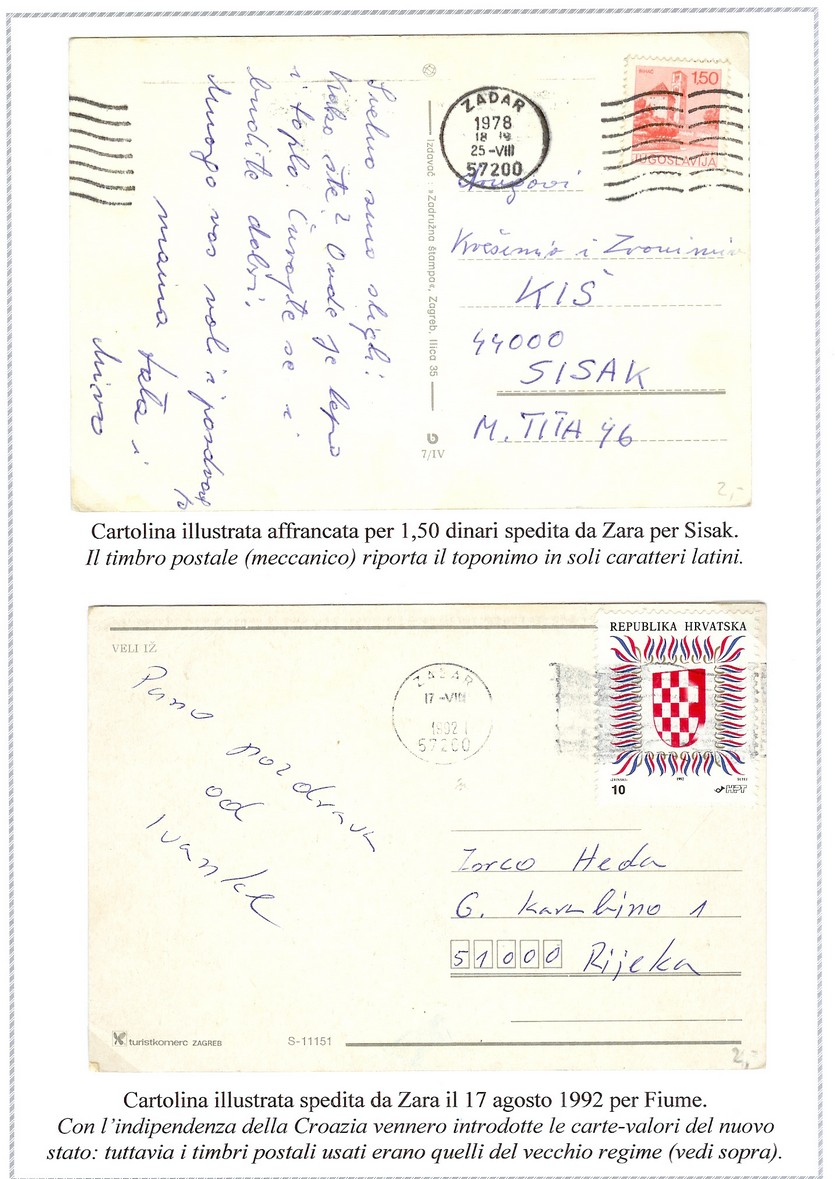 Sretno smo stigli!
Kako ste? Ovde je lepo
i toplo. Čuvajte se i
budite dobri.
Mnogo vas voli i pozdravlja
mama tata i
ZADAR
1978
18 19
25-VIII
57200
BIHAĆ
1,50
JUGOSLAVIJA
Izdavač: »Zadružna štampa«, Zagreb. Ilica 35
7/IV
Krešimir i Zvonimir
KIŠ
44000
SISAK
M. TITA 46
2,-
Cartolina illustrata affrancata per 1,50 dinari spedita da Zara per Sisak.
Il timbro postale (meccanico) riporta il toponimo in soli caratteri latini.
VELI IŽ
Puno pozdrava
od
Ivanke
ZADAR
17-VIII
1992
57200
REPUBLIKA HRVATSKA
1992
10
HPT
Zorco Heda
G. Karabino 1
51000 Rijeka
turistkomerc ZAGREB
S-11151
2,-
Cartolina illustrata spedita da Zara il 17 agosto 1992 per Fiume.
Con l'indipendenza della Croazia vennero introdotte le carte-valori del nuovo
stato: tuttavia i timbri postali usati erano quelli del vecchio regime (vedi sopra).